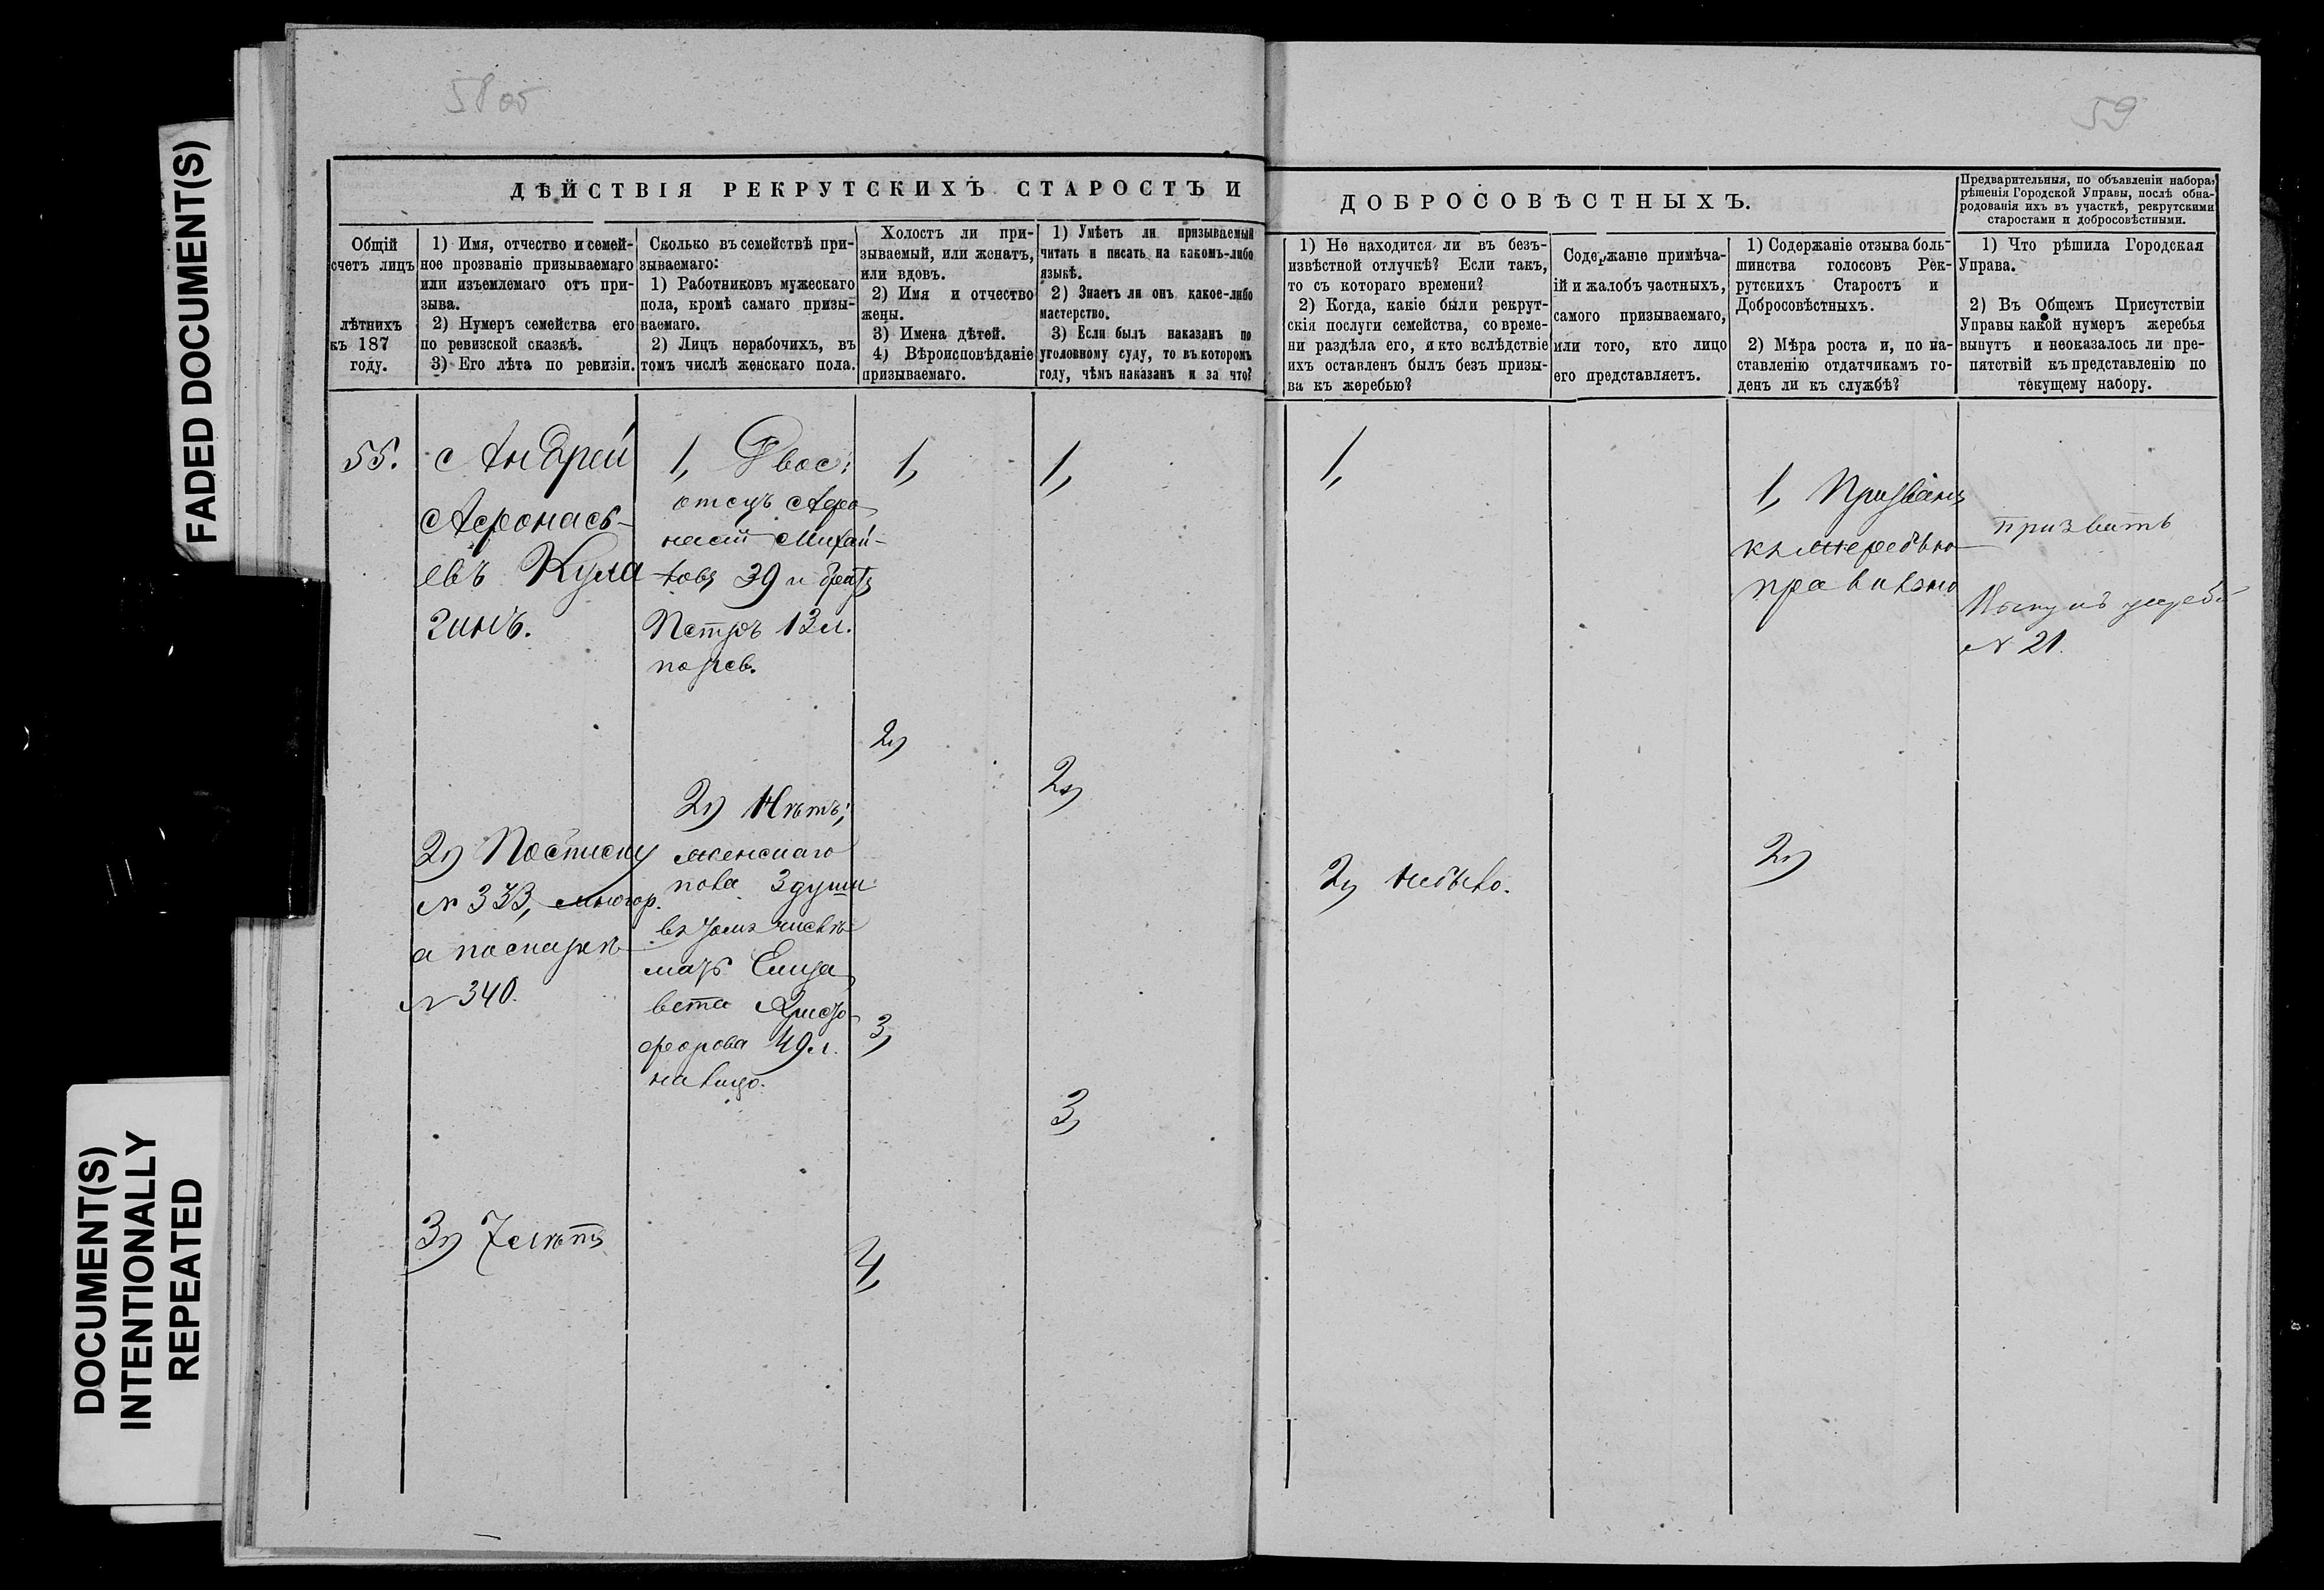 58 об
59
FADED DOCUMENT(S)
DOCUMENT(S)
INTENTIONALLY
REPEATED
ДѢЙСТВІЯ РЕКРУТСКИХЪ СТАРОСТЪ И
ДОБРОСОВѢСТНЫХЪ.
Предварительныя, по объявленіи набора,
рѣшенія Городской Управы, послѣ обна-
родованія ихъ въ участкѣ, рекрутскими
старостами и добросовѣстными.
Общій
счетъ лицъ
лѣтнихъ
къ 187
году.
1) Имя, отчество и семей-
ное прозваніе призываемаго
или изъемлемаго отъ при-
зыва.
2) Нумеръ семейства его
по ревизской сказкѣ.
3) Его лѣта по ревизіи.
Сколько въ семействѣ при-
зываемаго:
1) Работниковъ мужескаго
пола, кромѣ самаго призы-
ваемаго.
2) Лицъ нерабочихъ, въ
томъ числѣ женскаго пола.
Холостъ ли при-
зываемый, или женатъ,
или вдовъ.
2) Имя и отчество
жены.
3) Имена дѣтей.
4) Вѣроисповѣданіе
призываемаго.
1) Умѣетъ ли призываемый
читать и писать на какомъ-либо
языкѣ.
2) Знаетъ ли онъ какое-либо
мастерство.
3) Если былъ наказанъ по
уголовному суду, то въ которомъ
году, чѣмъ наказанъ и за что?
1) Не находится ли въ безъ-
извѣстной отлучкѣ? Если такъ,
то съ котораго времени?
2) Когда, какіе были рекрут-
скія послуги семейства, со време-
ни раздѣла его, и кто вслѣдствіе
ихъ оставленъ былъ безъ призы-
ва къ жеребью?
Содержаніе примѣча-
ій и жалобъ частныхъ,
самого призываемаго,
или того, кто лицо
его представляетъ.
1) Содержаніе отзыва боль-
шинства голосовъ Рек-
рутскихъ Старостъ и
Добросовѣстныхъ.
2) Мѣра роста и, по на-
ставленію отдатчикамъ го-
денъ ли къ службѣ?
1) Что рѣшила Городская
Управа.
2) Въ Общемъ Присутствіи
Управы какой нумеръ жеребья
вынутъ и неоказалось ли пре-
пятствій къ представленію по
текущему набору.
55.
Андрей
Афонась-
евъ Кула
гинъ.
2) По списку
№ 333,
а по сказкѣ
№ 340.
3) 7 лѣтъ
1, Двое:
отецъ Афо
насій Михай-
ловъ 39 и братъ
Петръ 13 л.
по рев.
2) Нѣтъ;
женскаго
пола 3 души
въ томъ числѣ
мать Елиза
вета Христо
форова 49 л.
на лицо.
1,
2)
3,
4,
1,
2)
3,
1,
2, небыло.
1, Призванъ
къ жеребью
правильно
2)
призвать
Вынулъ жребій
№ 21.